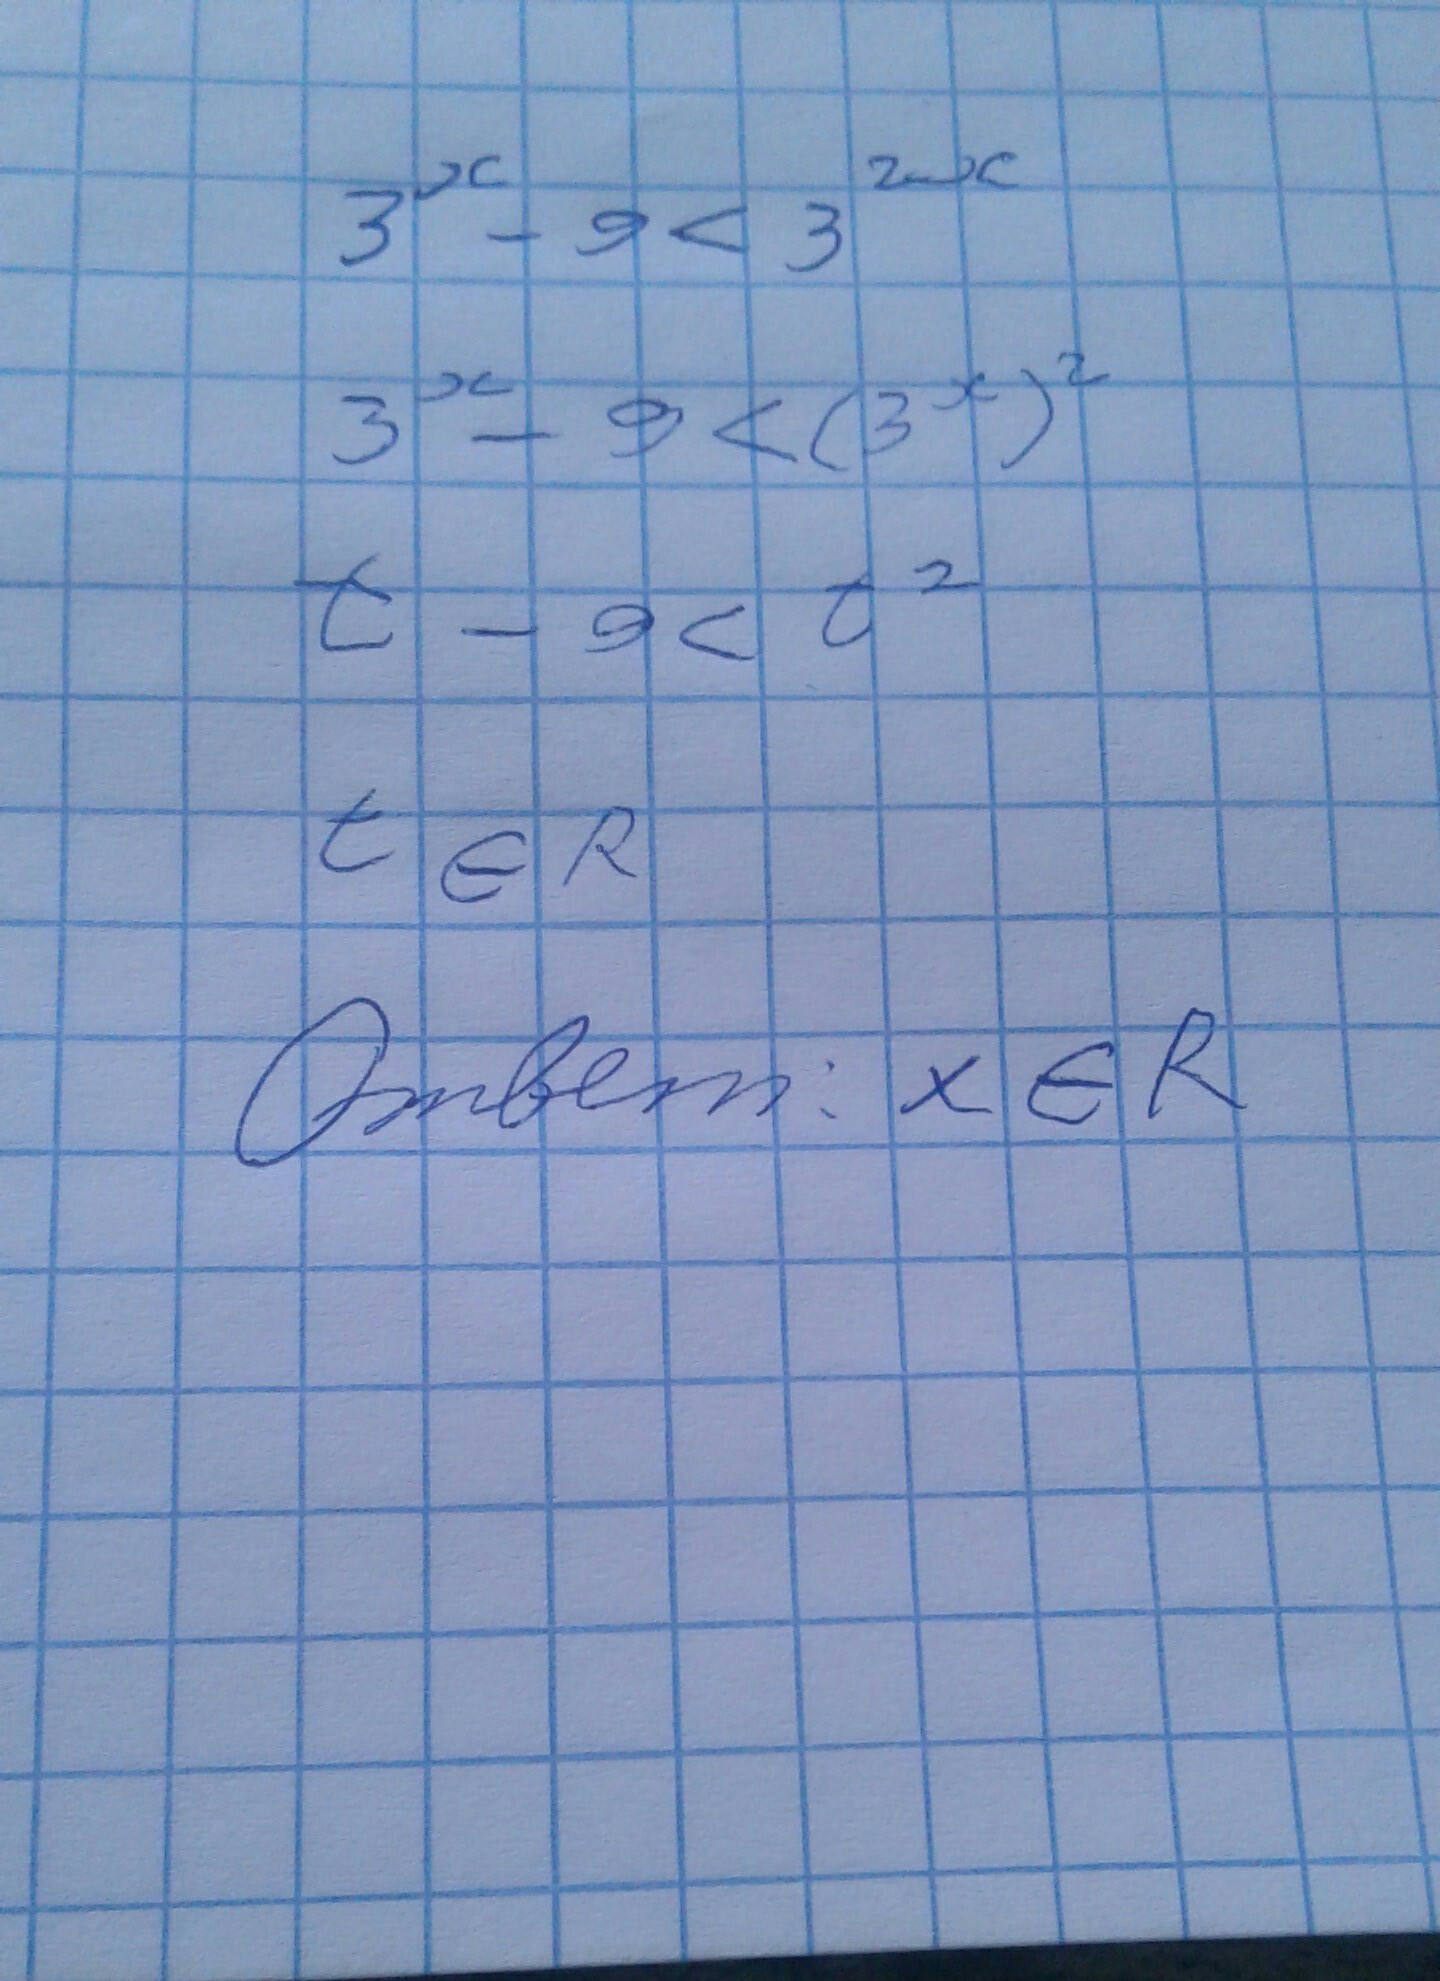 3^x - 9 < 3^{2x}
3^x - 9 < (3^x)^2
t - 9 < t^2
t ∈ R
Ответ: x ∈ R